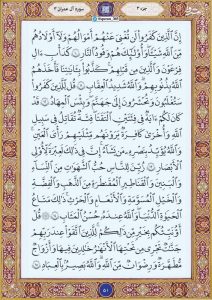 جزء ۳
سورة آل عمران ۳
إِنَّ ٱلَّذِينَ كَفَرُوا۟ لَن تُغْنِىَ عَنْهُمْ أَمْوَٰلُهُمْ وَلَآ أَوْلَٰدُهُم
مِّنَ ٱللَّهِ شَيْـًٔا وَأُو۟لَٰٓئِكَ هُمْ وَقُودُ ٱلنَّارِ ١٠ كَدَأْبِ ءَالِ
فِرْعَوْنَ وَٱلَّذِينَ مِن قَبْلِهِمْ كَذَّبُوا۟ بِـَٔايَٰتِنَا فَأَخَذَهُمُ
ٱللَّهُ بِذُنُوبِهِمْ وَٱللَّهُ شَدِيدُ ٱلْعِقَابِ ١١ قُل لِّلَّذِينَ كَفَرُوا۟
سَتُغْلَبُونَ وَتُحْشَرُونَ إِلَىٰ جَهَنَّمَ وَبِئْسَ ٱلْمِهَادُ ١٢ قَدْ
كَانَ لَكُمْ ءَايَةٌ فِى فِئَتَيْنِ ٱلْتَقَتَا فِئَةٌ تُقَٰتِلُ فِى سَبِيلِ
ٱللَّهِ وَأُخْرَىٰ كَافِرَةٌ يَرَوْنَهُم مِّثْلَيْهِمْ رَأْىَ ٱلْعَيْنِ
وَٱللَّهُ يُؤَيِّدُ بِنَصْرِهِۦ مَن يَشَآءُ إِنَّ فِى ذَٰلِكَ لَعِبْرَةً لِّأُو۟لِى
ٱلْأَبْصَٰرِ ١٣ زُيِّنَ لِلنَّاسِ حُبُّ ٱلشَّهَوَٰتِ مِنَ ٱلنِّسَآءِ
وَٱلْبَنِينَ وَٱلْقَنَٰطِيرِ ٱلْمُقَنطَرَةِ مِنَ ٱلذَّهَبِ وَٱلْفِضَّةِ
وَٱلْخَيْلِ ٱلْمُسَوَّمَةِ وَٱلْأَنْعَٰمِ وَٱلْحَرْثِ ذَٰلِكَ مَتَٰعُ
ٱلْحَيَوٰةِ ٱلدُّنْيَا وَٱللَّهُ عِندَهُۥ حُسْنُ ٱلْمَـَٔابِ ١٤ قُلْ
أَؤُنَبِّئُكُم بِخَيْرٍ مِّن ذَٰلِكُمْ لِلَّذِينَ ٱتَّقَوْا۟ عِندَ رَبِّهِمْ
جَنَّٰتٌ تَجْرِى مِن تَحْتِهَا ٱلْأَنْهَٰرُ خَٰلِدِينَ فِيهَا وَأَزْوَٰجٌ
مُّطَهَّرَةٌ وَرِضْوَٰنٌ مِّنَ ٱللَّهِ وَٱللَّهُ بَصِيرٌۢ بِٱلْعِبَادِ ١٥
۵۱